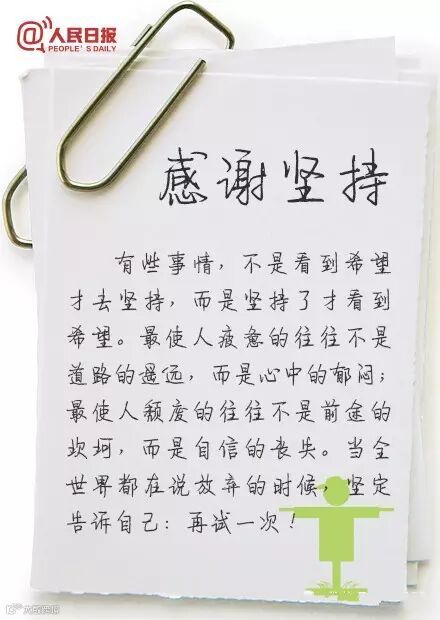 @人民日报
PEOPLE'S DAILY
感谢坚持
有些事情，不是看到希望
才去坚持，而是坚持了才看到
希望。最使人疲惫的往往不是
道路的遥远，而是心中的郁闷；
最使人颓废的往往不是前途的
坎坷，而是自信的丧失。当全
世界都在说放弃的时候，坚定
告诉自己：再试一次！
人民日报